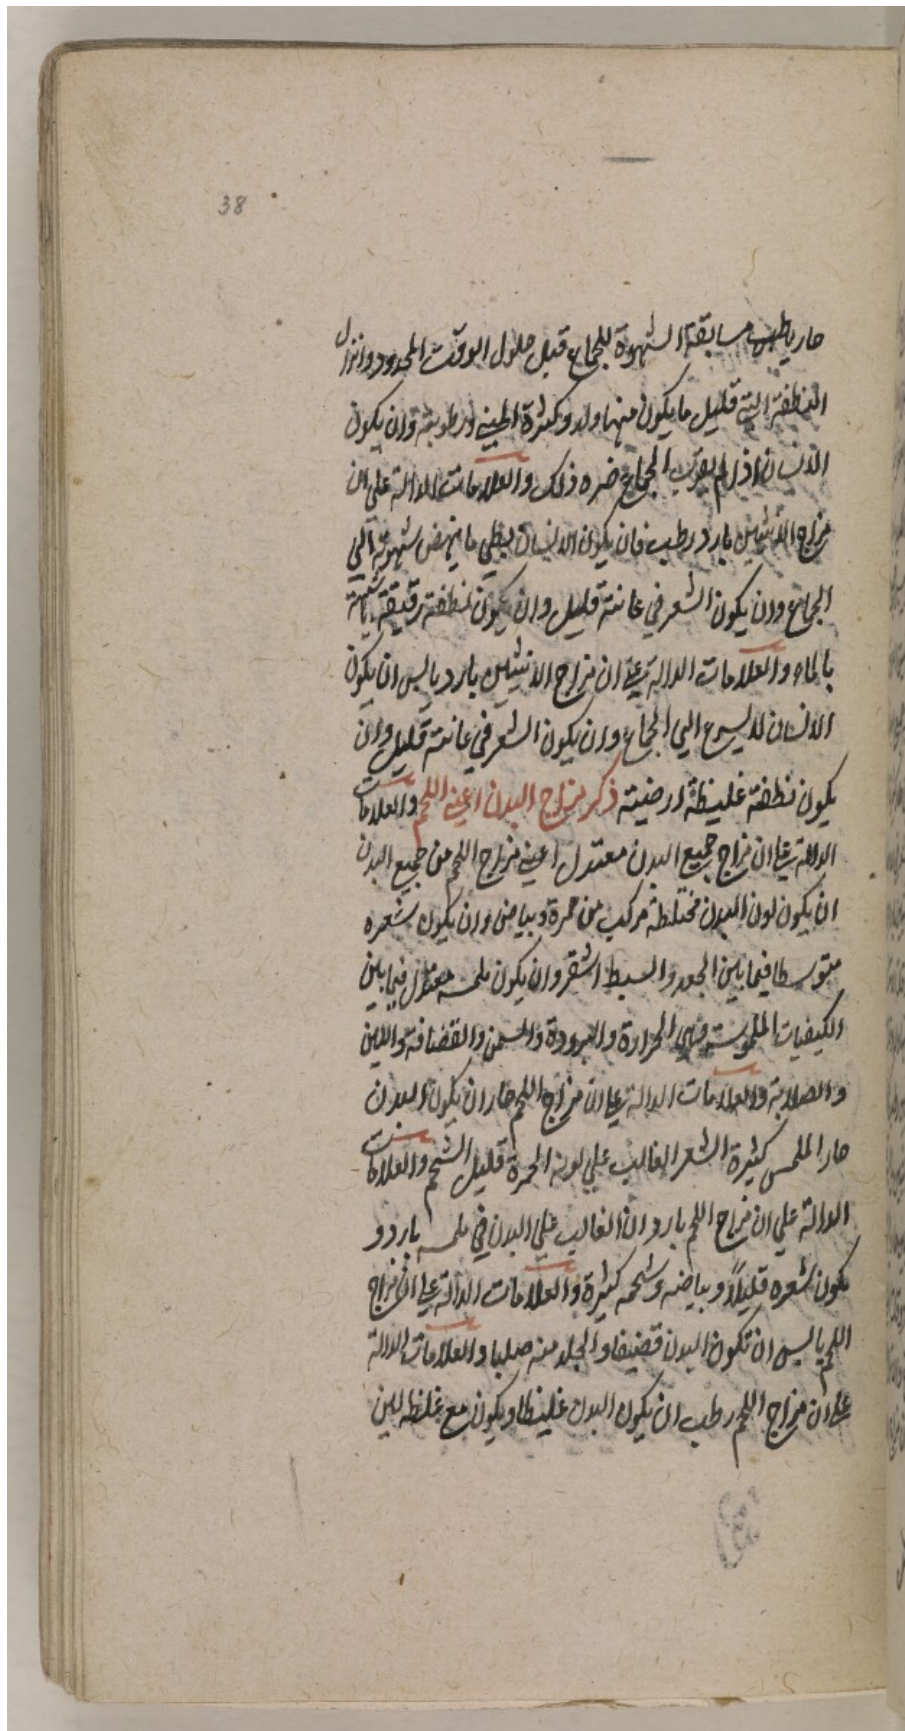 38
حار يا طب مسابقة الشهوة للجماع قبل حلول الوقت المحدود وانزال
النطفة التي قليل ما يكون منها ولد وكثرة المني ورطوبته وان يكون
الانسان اذا لم يقرب الجماع ضره ذلك والعلامات الدالة علي ان
مزاج الانثيين بارد رطب فان يكون الانسان بطي ما ينهض شهوته الي
الجماع وان يكون الشعر في عانته قليل وان يكون نطفته رقيقة شبيهة
بالماء والعلامات الدالة علي ان مزاج الانثيين بارد يابس ان يكون
الانسان لا يسرع الي الجماع وان يكون الشعر في عانته قليل وان
يكون نطفته غليظة ارضية ذكر مزاج البدن اعني اللحم والعلامات
الدالة علي ان مزاج جميع البدن معتدل اعني مزاج اللحم من جميع البدن
ان يكون لون البدن مختلطة مركب من حمرة وبياض وان يكون شعره
متوسطا فيما بين الجعد والسبط اشقر وان يكون ملمسه معتدل فيما بين
الكيفيات الملموسة وهي الحرارة والبرودة والسمن والقضافة واللين
والصلابة والعلامات الدالة علي ان مزاج اللحم حار ان يكون البدن
حار الملمس كثيرة الشعر الغالب علي لونه الحمرة قليل الشحم والعلامات
الدالة علي ان مزاج اللحم بارد ان الغالب علي البدن في ملمسه بارد و
يكون شعره قليلاً وبياضه وشحمه كثيرة والعلامات الدالة علي ان مزاج
اللحم يابس ان تكون البدن قضيفا والجلد منه صلبا والعلامات الدالة
علي ان مزاج اللحم رطب ان يكون البدن غليظا ويكون مع غلظه لين